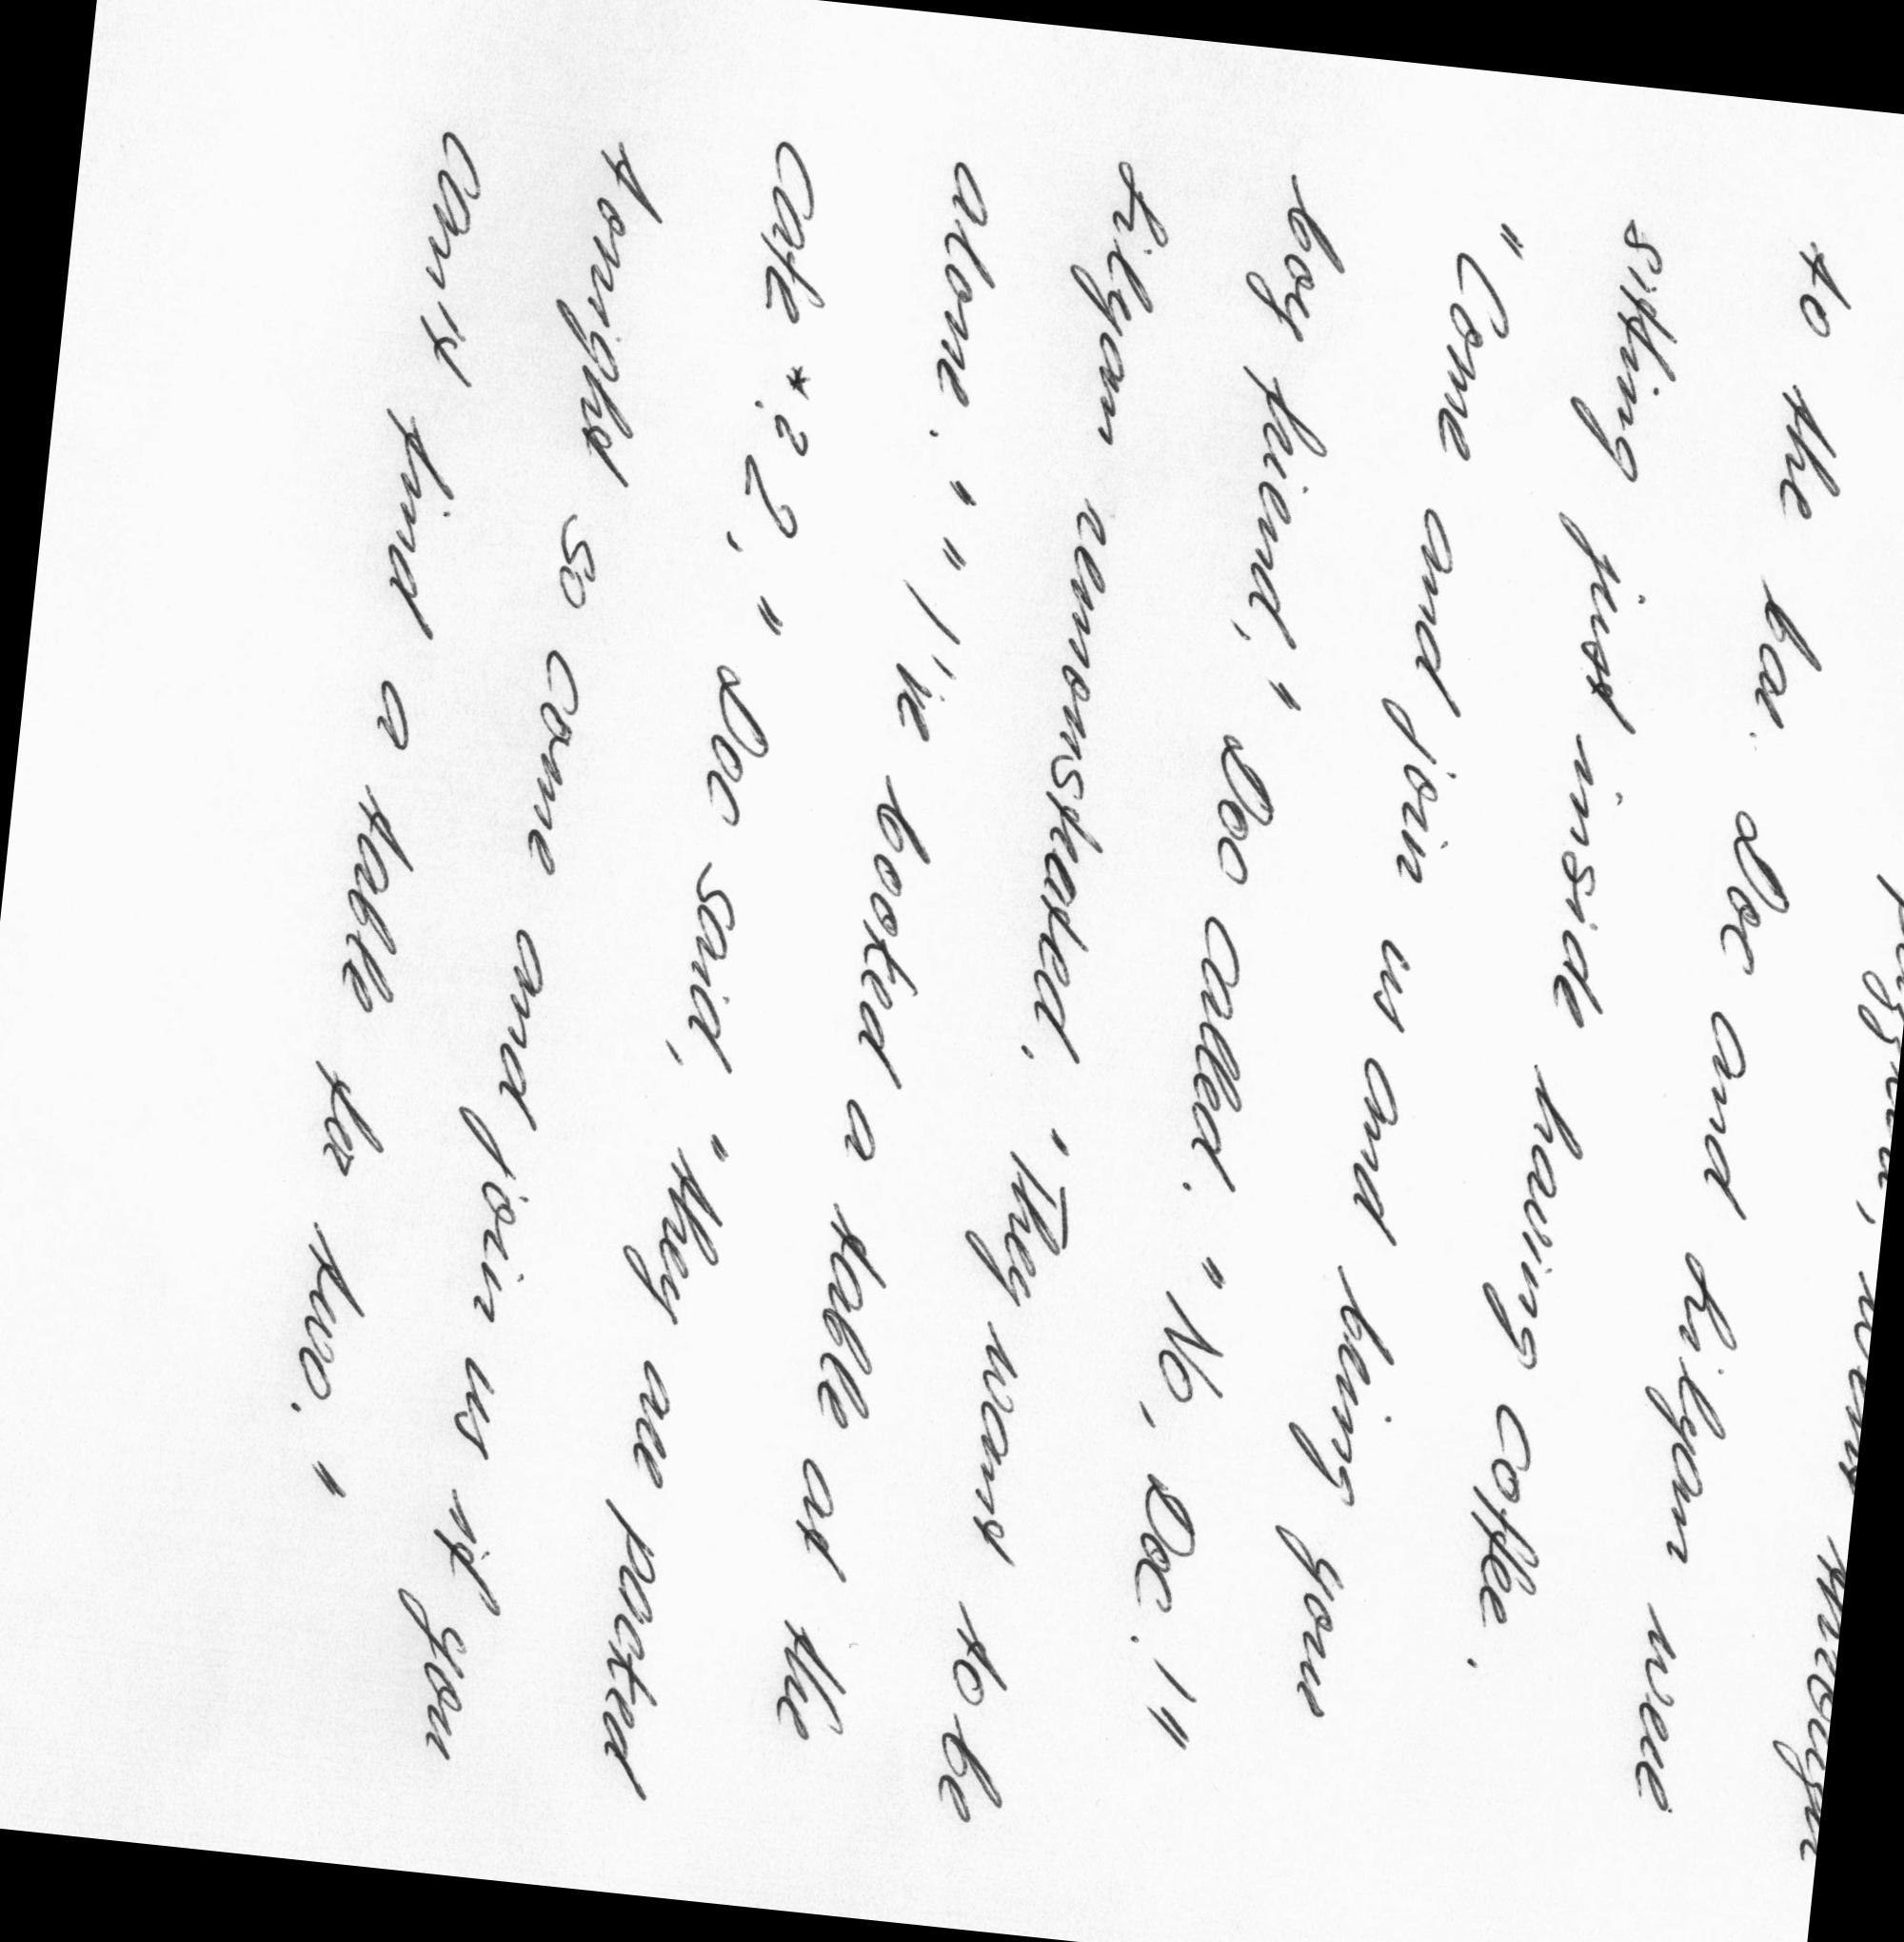 went through
to the bar. Doc and Lilyan were
sitting just inside having coffee.
"Come and join us and bring your
boy friend," Doc called. "No, Doc!"
Lilyan remonstrated. "They want to be
alone." "I've booked a table at the
Cafe *?2," Doc said, "they are packed
tonight so come and join us if you
can't find a table for two."